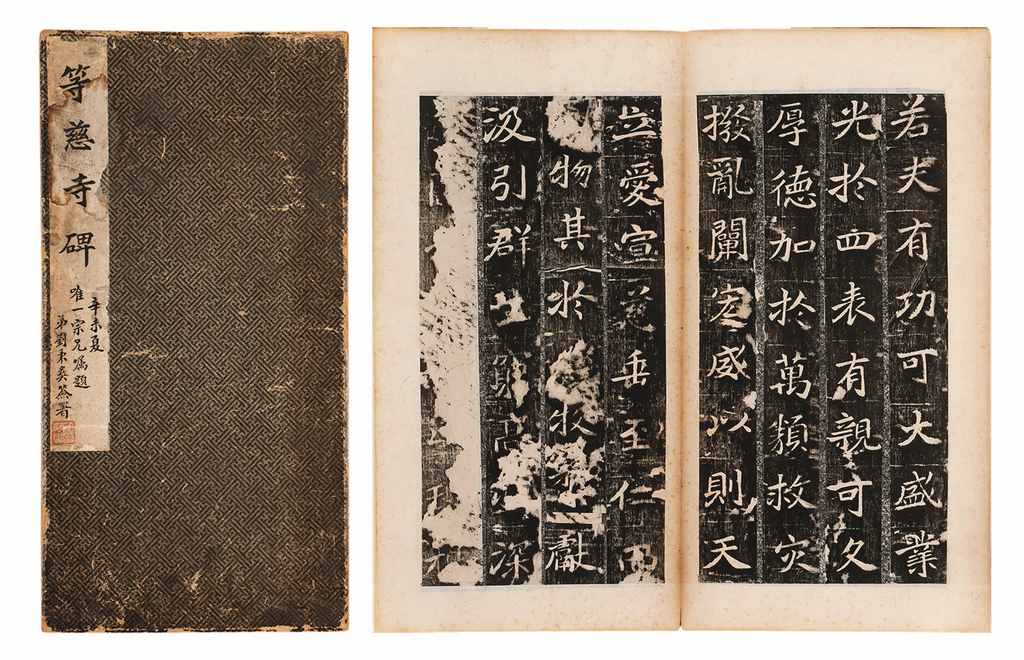 等慈寺碑
辛未夏
唯一宗兄寫題
弟劉 簽署
若夫有功可大盛業
光於四表有親可久
厚德加於萬類救灾
撥亂闡宏威以則天
立愛宣慈垂至仁而
物其於牧獻
汲引群生深